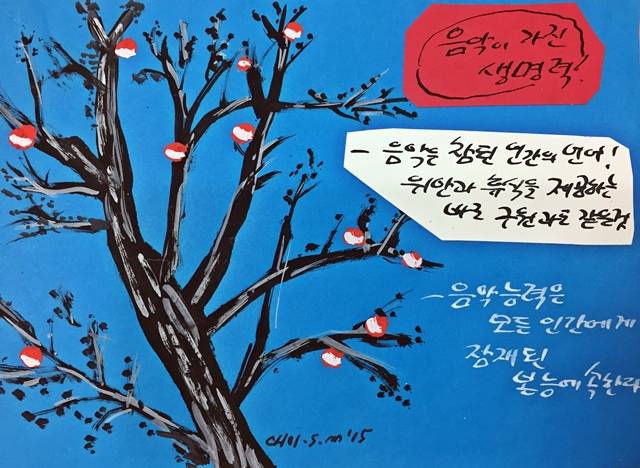 음악이 가진
생명력!
- 음악은 참된 인간의 언어!
위안과 휴식을 제공하는
바로 구원과도 같은것
- 음악능력은
모든 인간에게
잠재된
본능에 속한다
S.M '15